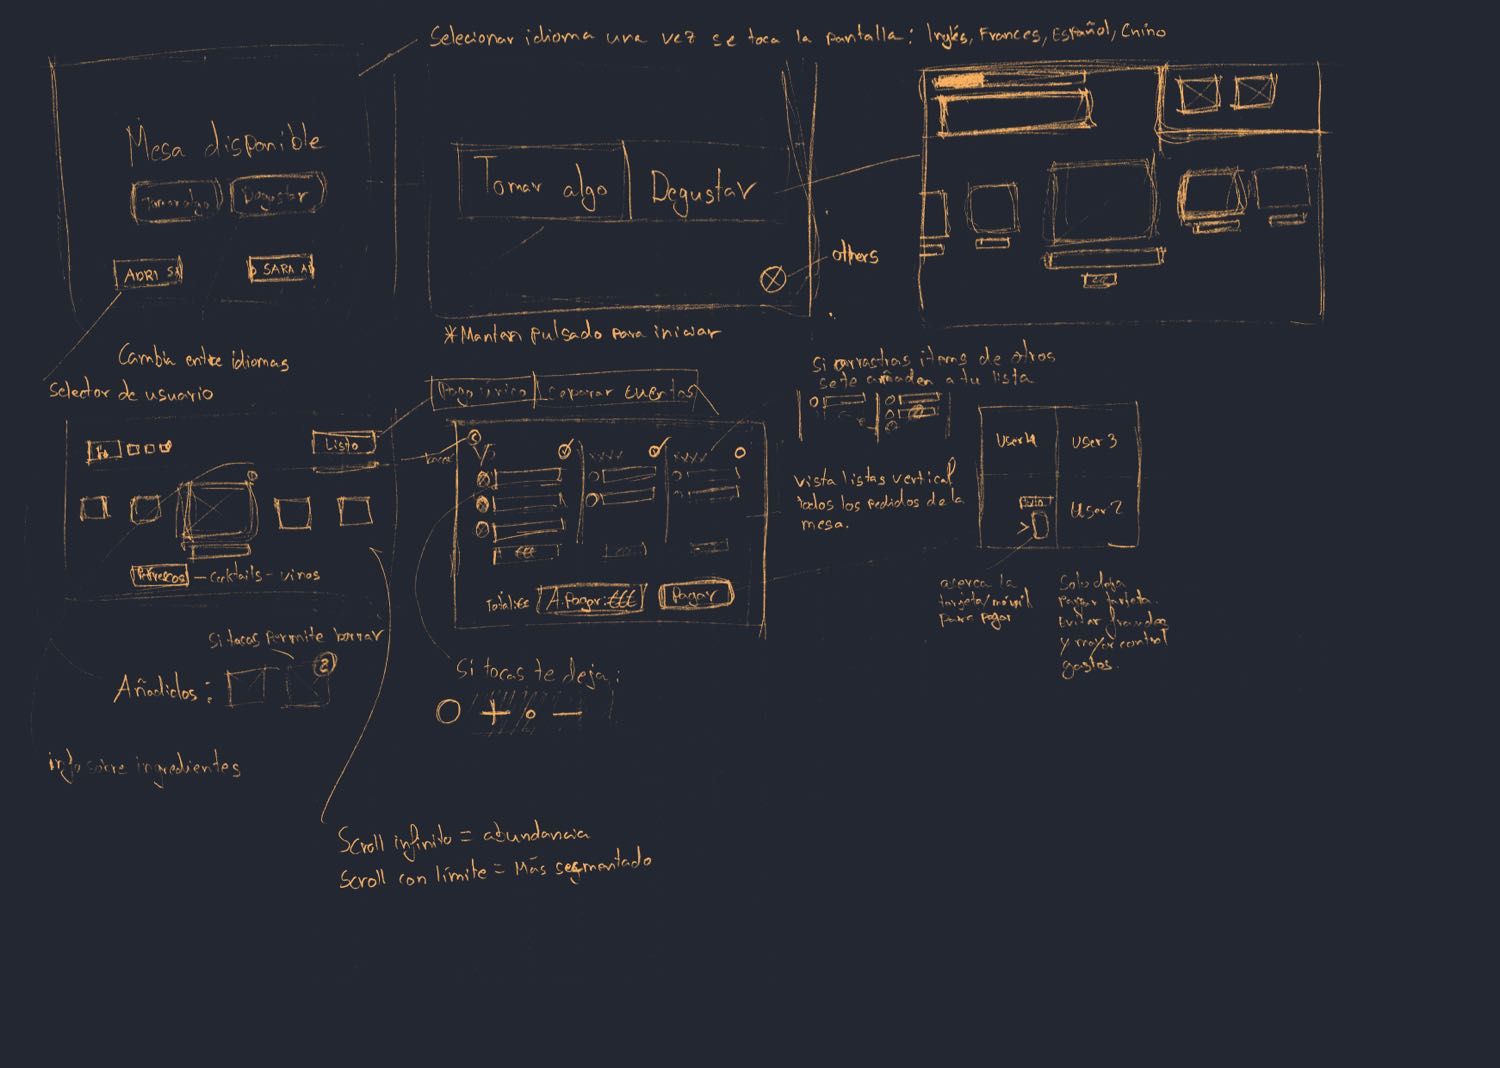 Selecionar idioma una vez se toca la pantalla: Inglés, Frances, Español, Chino
Mesa disponible
Tomar algo
Degustar
ADRI SA
SARA AI
Cambia entre idiomas
Selector de usuario
Tomar algo
Degustar
others
*Manten pulsado para iniciar
€€
Pago único
separar cuentas
Si arrastras items de otros
se te añaden a tu lista
Listo
Yo
€€€
Totalice
A.Pagar:€€€
Pagar
Vista listas vertical
todos los pedidos de la
mesa.
User 4
User 3
User 2
acerca la
targeta/móvil
para pagar
Solo deja
pagar tarjeta.
Evitar fraudes
y mayor control
gastos.
Refrescos - cocktails - vinos
Si tocas permite borrar
Añadidos:
2
Si tocas te deja:
info sobre ingredientes
Scroll infinito = abundancia
Scroll con límite = Más segmentado